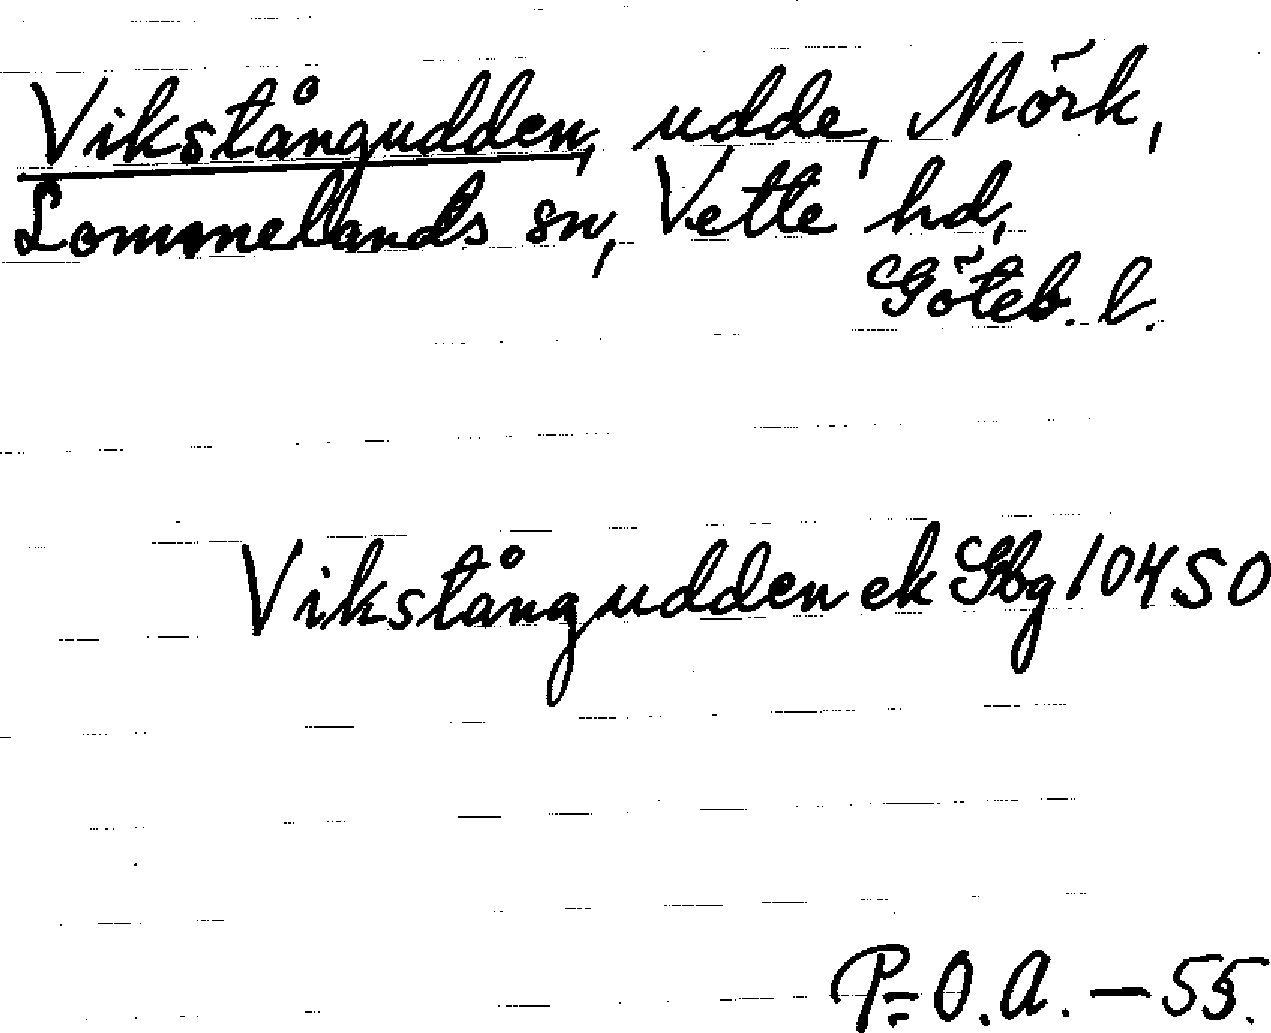 Vikstångudden, udde, Mörk,
Lommelands sn, Vette hd,
Göteb. l.
Vikstångudden ek Gbg 10450
P-O.A. - 55.